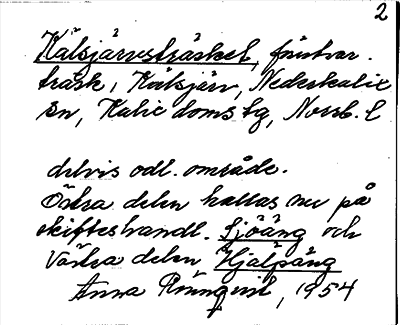 2
Kälsjärvsträsket, försvar.
träsk, Kälsjärv, Nederkalix
sn, Kalix doms. tg, Norrb. l
delvis odl. område.
Östra delen kallas nu på
skifteshandl. Sjöäng och
Västra delen Hjälpäng
Anna Rönnqvist, 1954